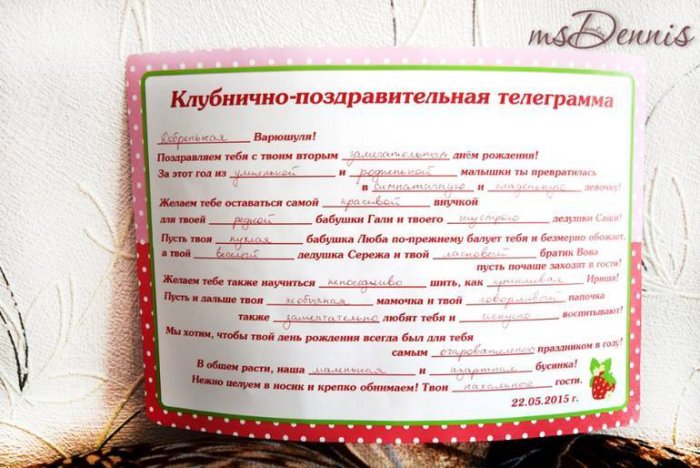 msDennis
Клубнично-поздравительная телеграмма
Добренькая Варюшуля!
Поздравляем тебя с твоим вторым замечательным днём рождения!
За этот год из умненькой и родненькой малышки ты превратилась
в симпатичную и сладенькую девочку!
Желаем тебе оставаться самой красивой внучкой
для твоей родной бабушки Гали и твоего шустрого дедушки Саши!
Пусть твоя пухлая бабушка Люба по-прежнему балует тебя и безмерно обожает,
а твой веселый дедушка Сережа и твой ласковый братик Вова
пусть почаще заходят в гости!
Желаем тебе также научиться непоседливо шить, как крикливая Ириша!
Пусть и дальше твоя необычная мамочка и твой говорливый папочка
также замечательно любят тебя и искусно воспитывают!
Мы хотим, чтобы твой день рождения всегда был для тебя
самым очаровательным праздником в году!
В общем расти, наша маленькая и азартная бусинка!
Нежно целуем в носик и крепко обнимаем! Твои нахальные гости.
22.05.2015 г.